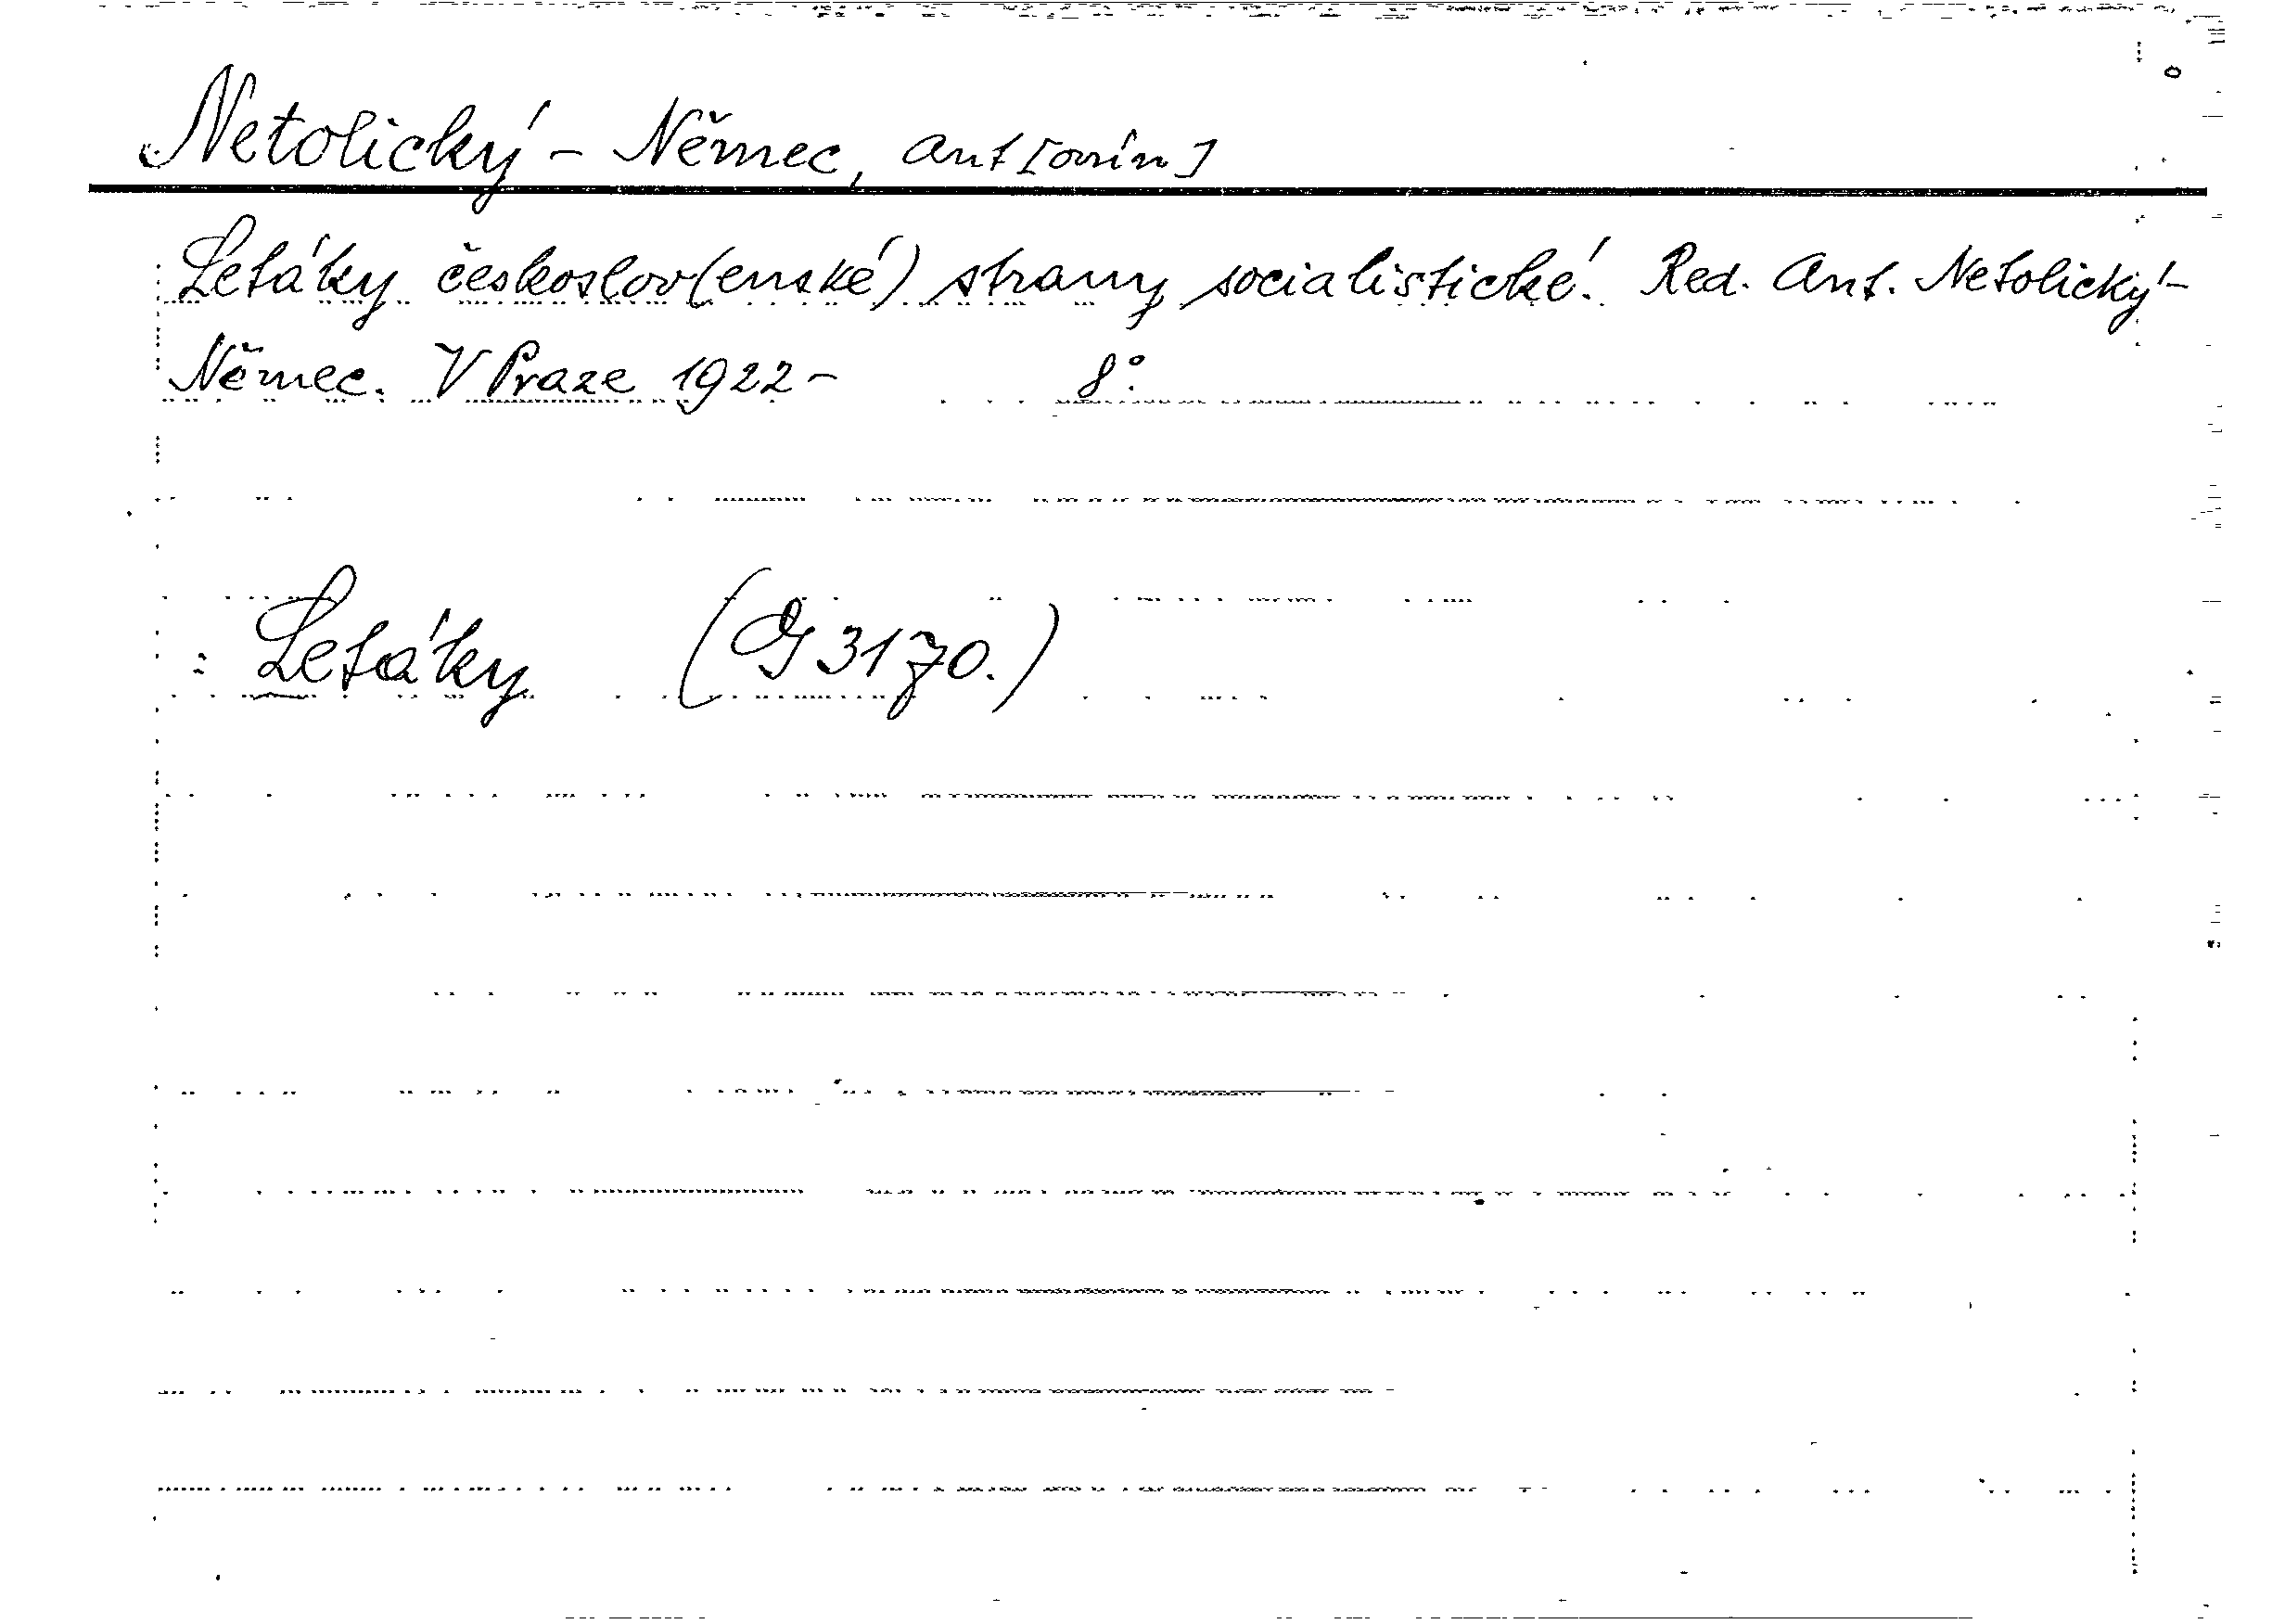 Netolický - Němec, Ant[onín]
Letáky českoslov(enské) strany socialistické. Red. Ant. Netolický-
Němec. V Praze 1922- 8°.
: Letáky (G 3170.)